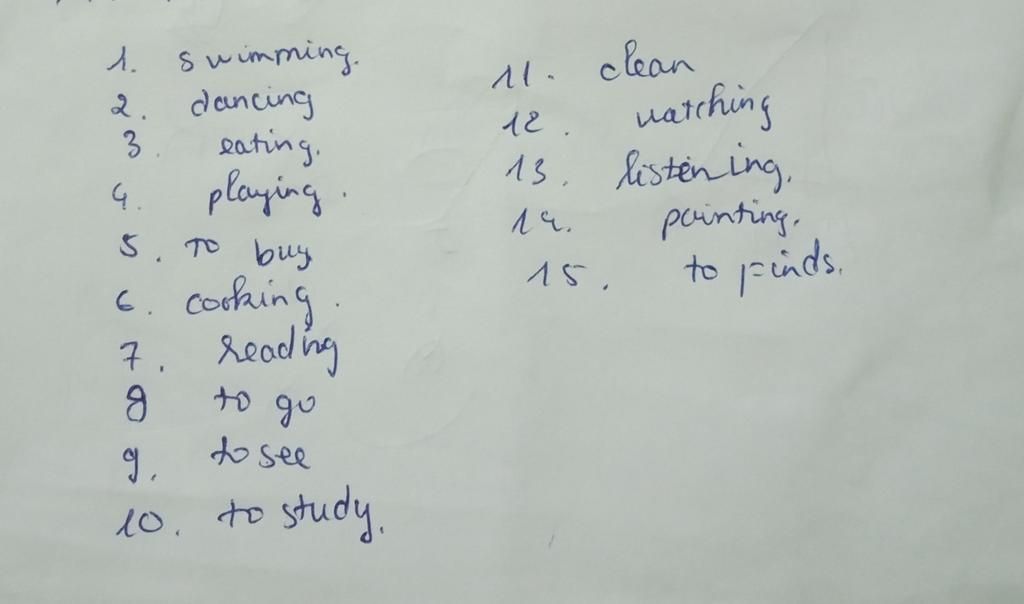 1. swimming.
2. dancing
3. eating.
4. playing.
5. To buy
6. cooking.
7. reading
8 to go
9. to see
10. to study.
11. clean
12. watching
13. listening.
14. painting.
15. to finds.